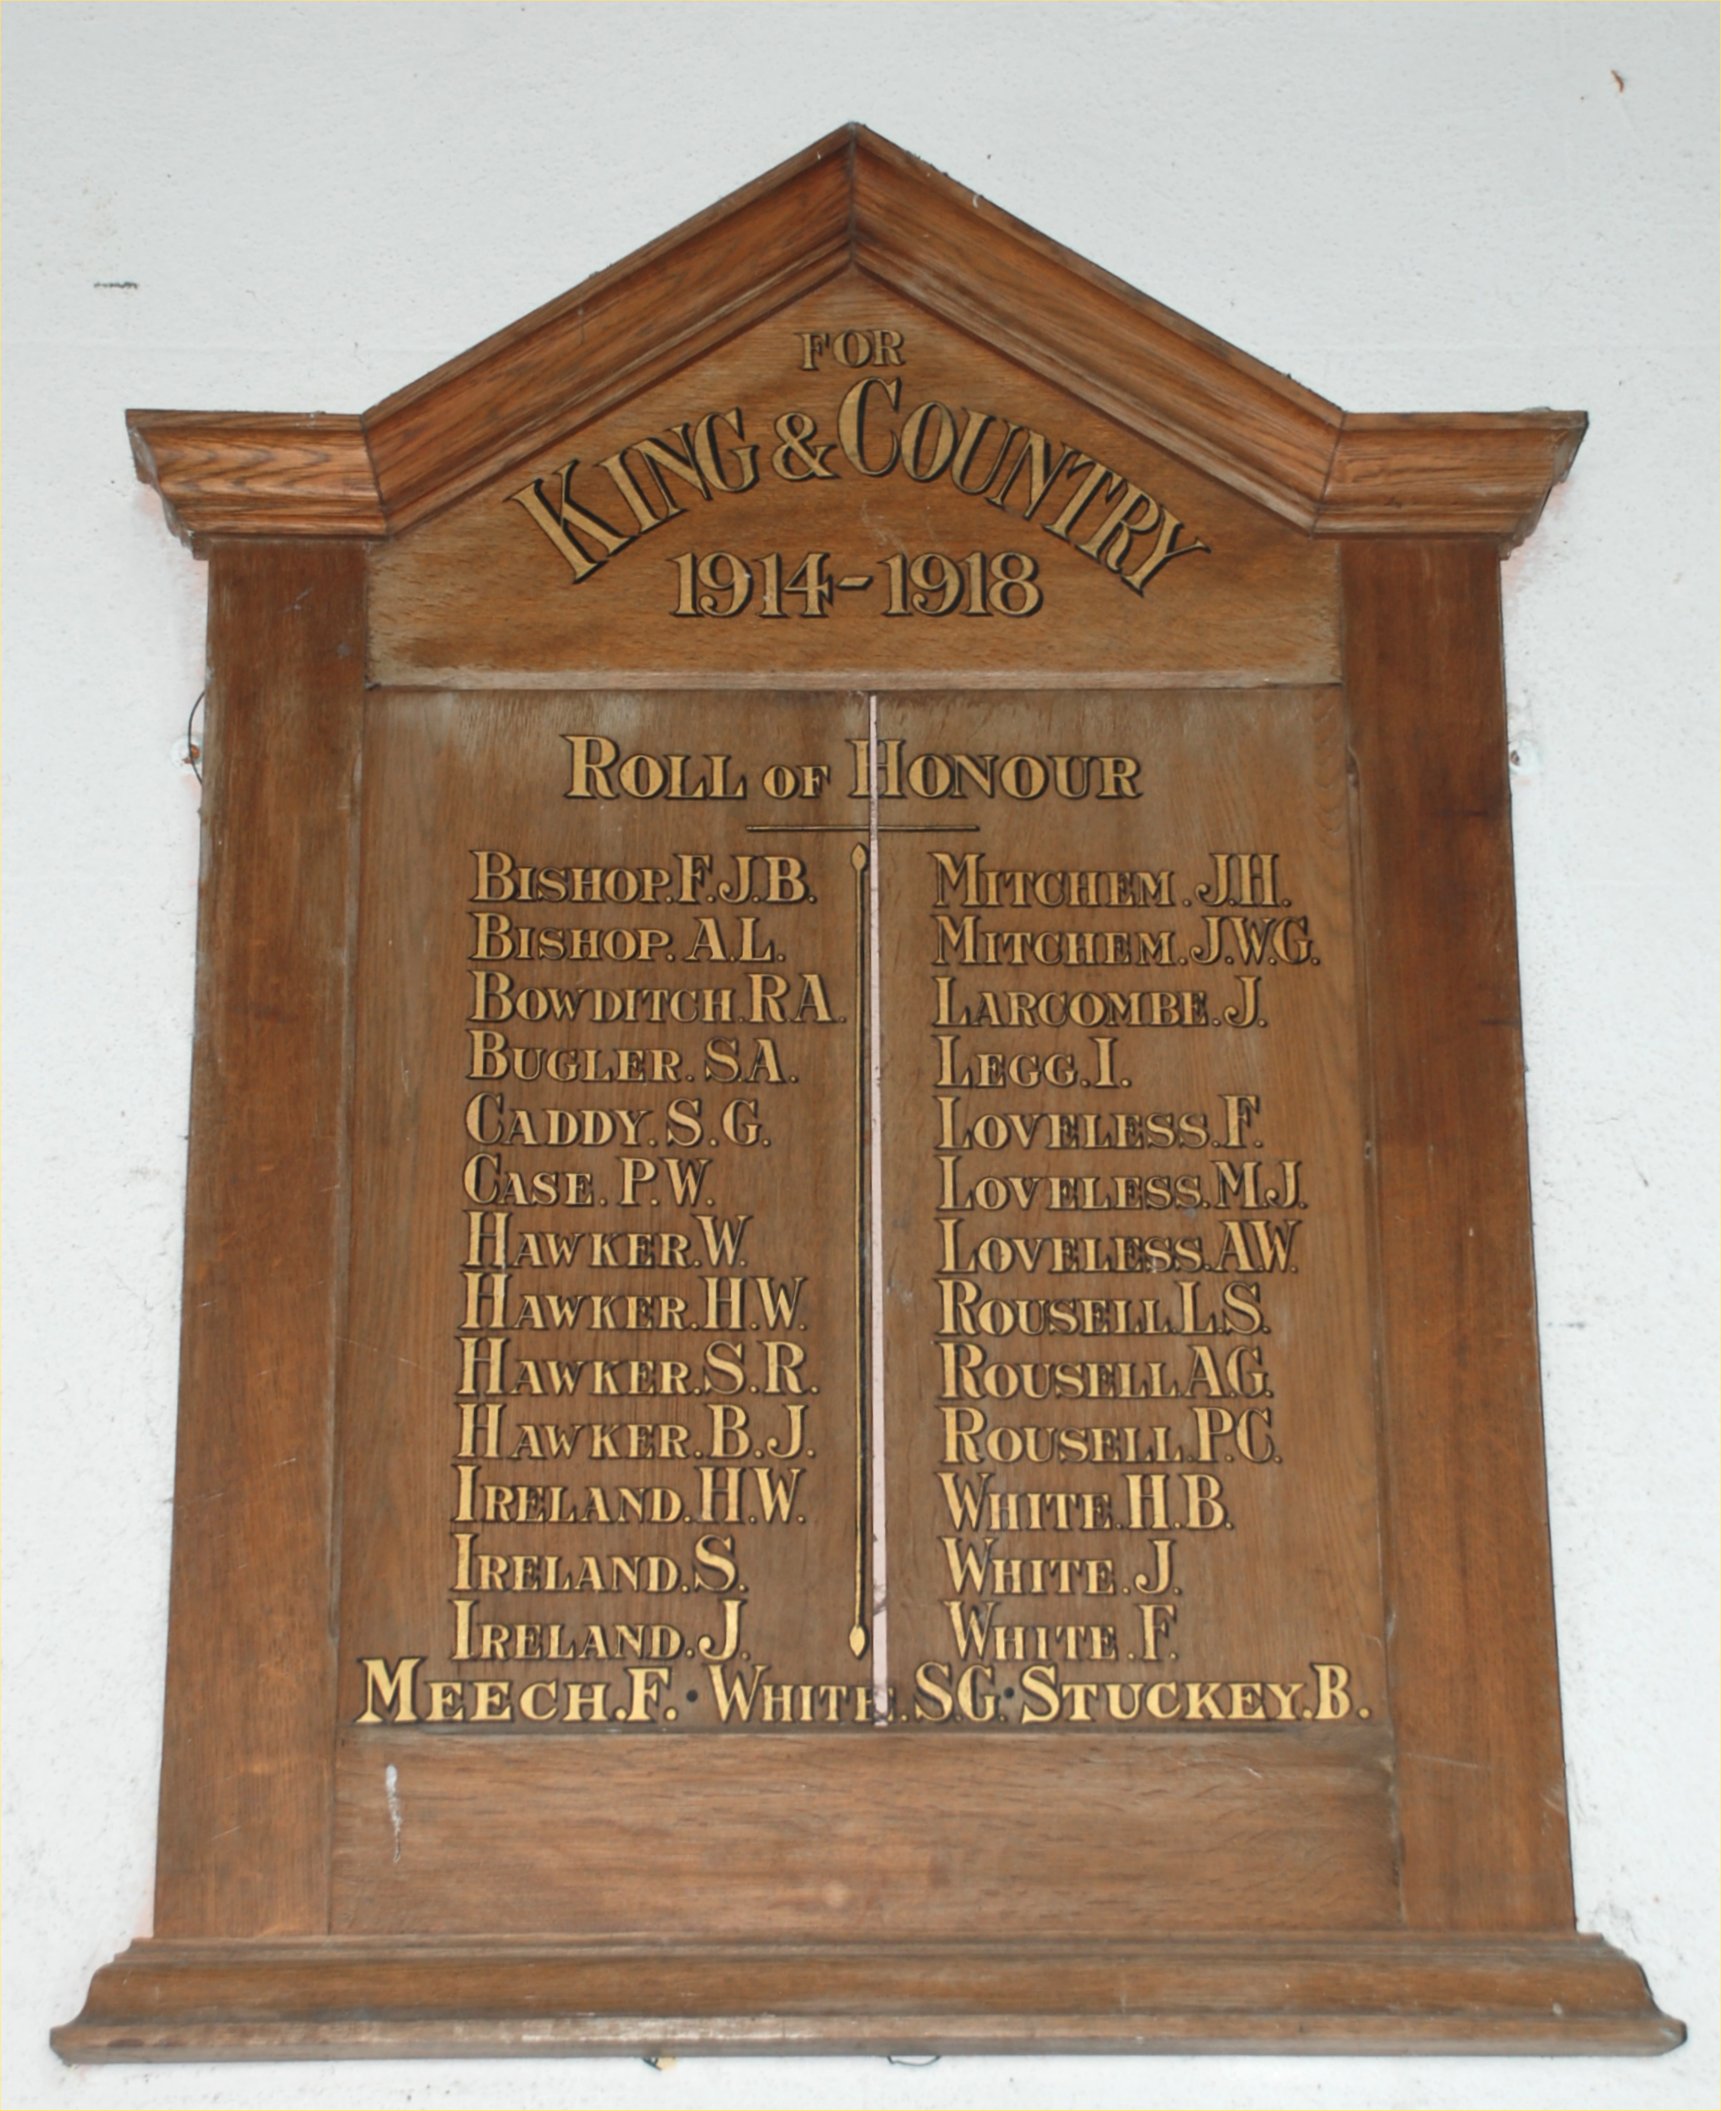 FOR
KING & COUNTRY
1914-1918
ROLL OF HONOUR
BISHOP. F.J.B.
BISHOP. A.L.
BOWDITCH. R.A.
BUGLER. S.A.
CADDY. S.G.
CASE. P.W.
HAWKER. W.
HAWKER. H.W.
HAWKER. S.R.
HAWKER. B.J.
IRELAND. H.W.
IRELAND. S.
IRELAND. J.
MITCHEM. J.H.
MITCHEM. J.W.G.
LARCOMBE. J.
LEGG. I.
LOVELESS. F.
LOVELESS. M.J.
LOVELESS. A.W.
ROUSELL. L.S.
ROUSELL. A.G.
ROUSELL. P.C.
WHITE. H.B.
WHITE. J.
WHITE. F.
MEECH. F. · WHITE. S.G. · STUCKEY. B.